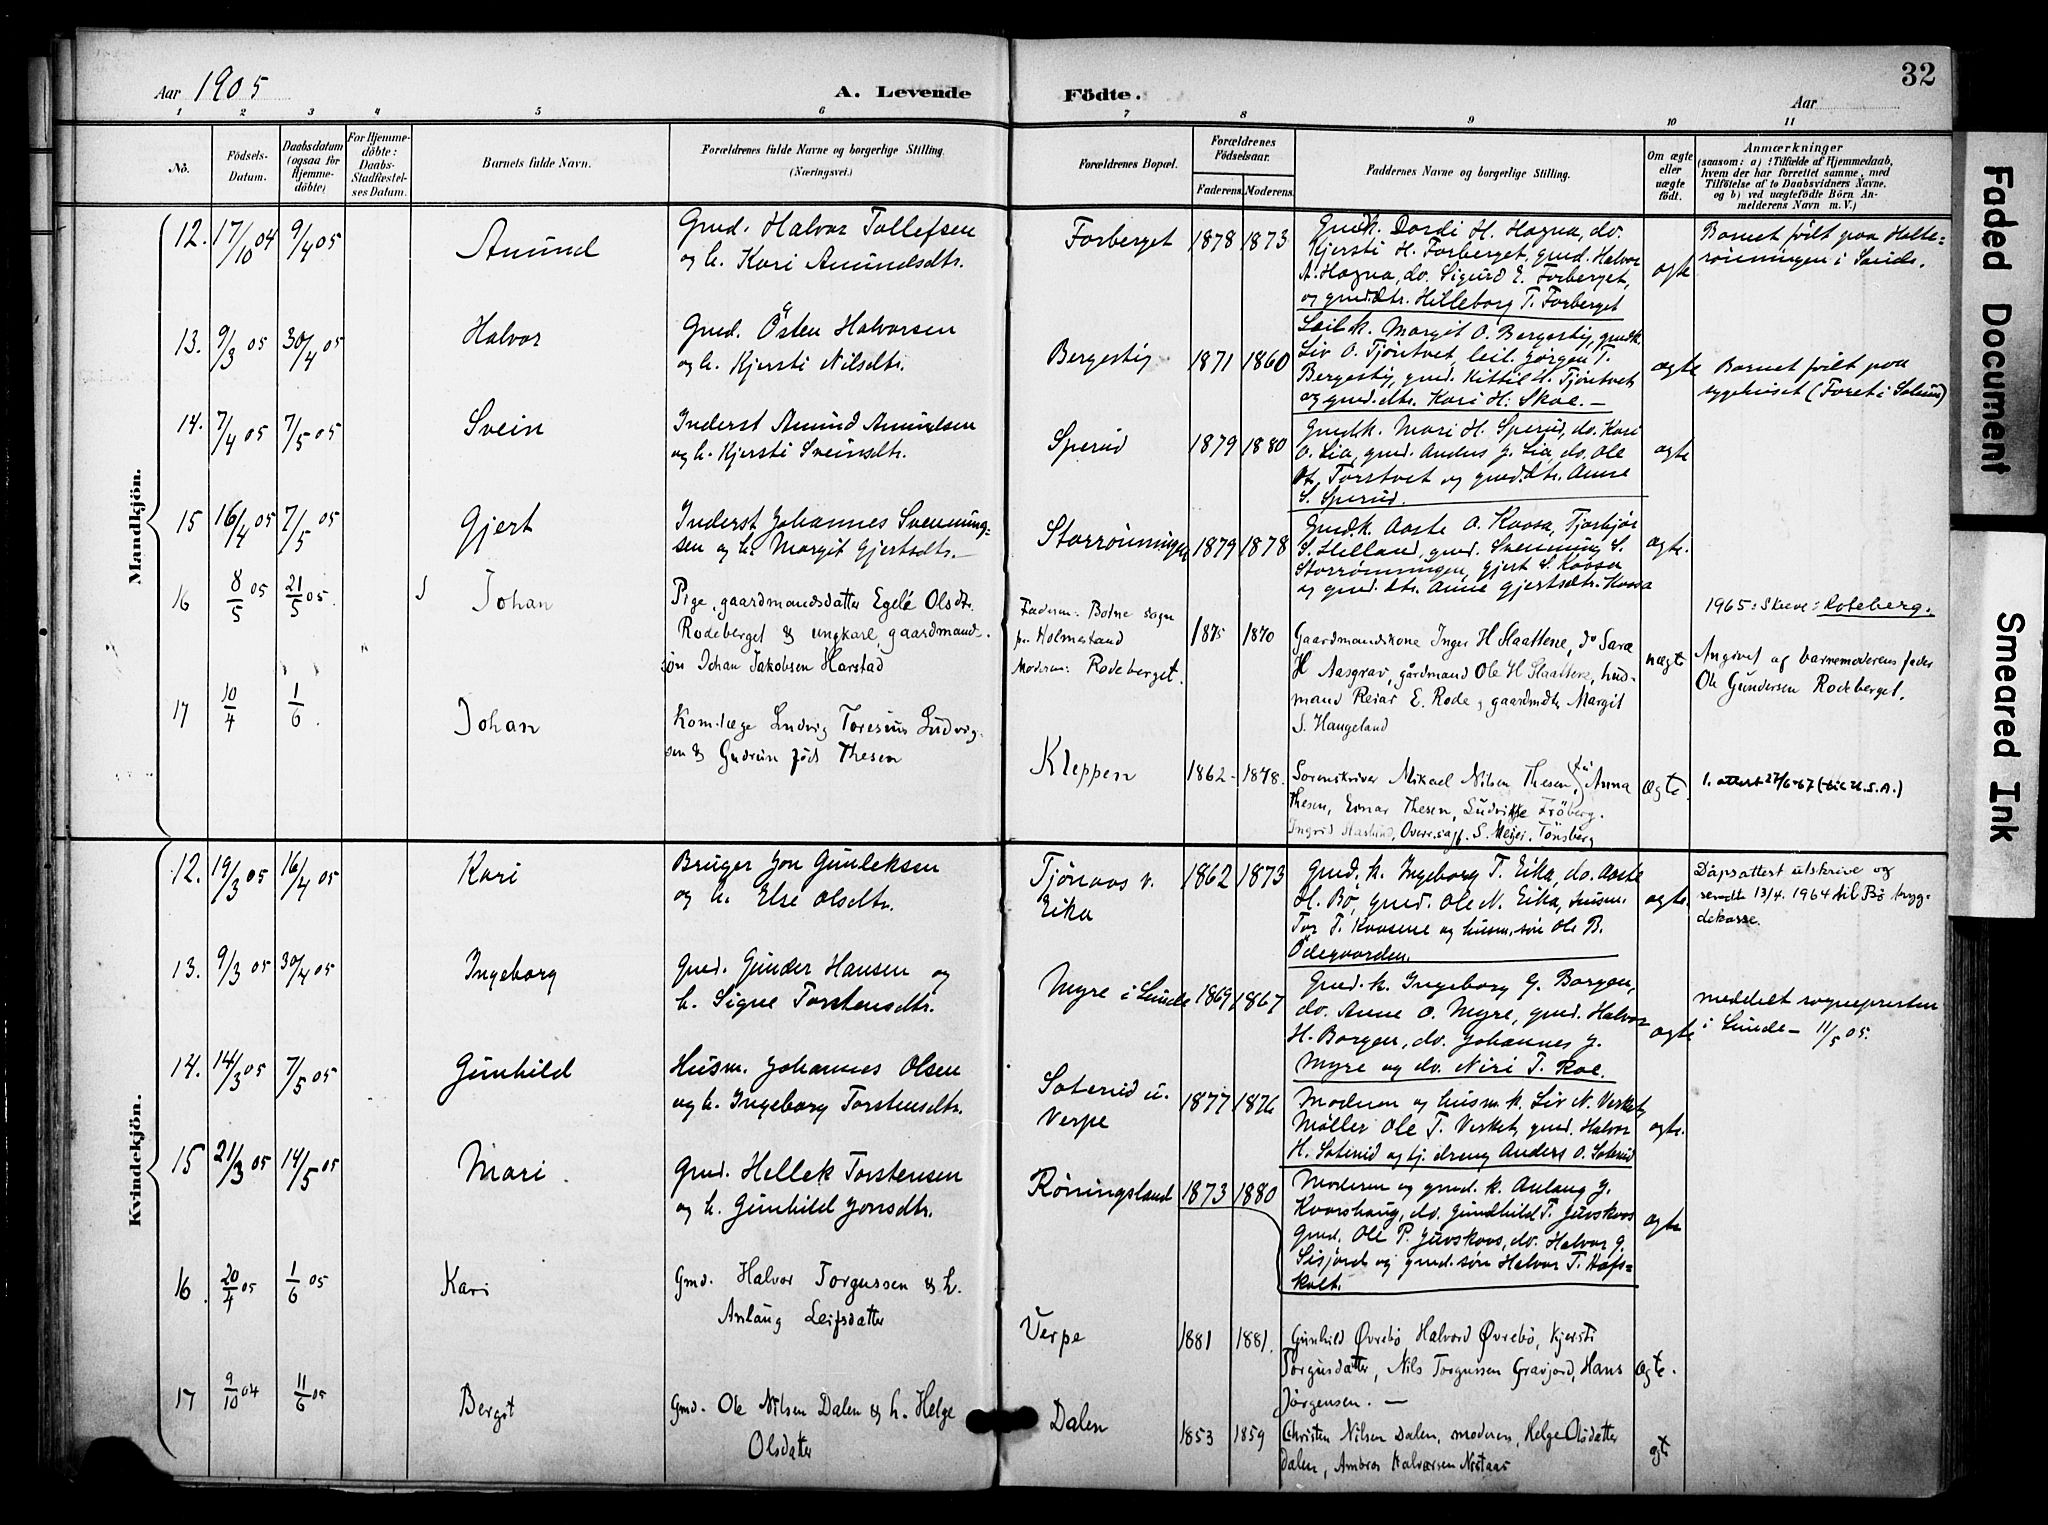 Aar 1905
A. Levende Födte.
Aar
32
1 2 3 4 5 6 7 8 9 10 11
No.
Födsels-Datum.
Daabsdatum (ogsaa for Hjemme-döbte)
For Hjemme-döbte: Daabs-Stadfæstel-ses Datum.
Barnets fulde Navn.
Forældrenes fulde Navne og borgerlige Stilling. (Næringsvei.)
Forældrenes Bopæl.
Forældrenes Födselsaar.
Faderens. Moderens.
Faddernes Navne og borgerlige Stilling.
Om ægte eller uægte födt.
Anmærkninger
(saasom: a) i Tilfælde af Hjemmedaab, hvem der har forrettet samme, med Tilföielse af to Daabsvidners Navne, og b) ved uægtefödte Börn An-melderens Navn m. V.)
Mandkjön.
12. 17/10 04 9/4 05 Amund
Gmd. Halvor Tollefsen
og h. Kari Amundsdtr.
Forberget 1878 1873
Gmdk. Dordi H. Hagna, do.
Kjersti H. Forberget, gmd. Halvor
A. Hagna, do. Sigurd E. Forberget,
og gmd.dtr. Hilleborg T. Forberget
ægte
Barnet født paa Holte-
rønningen i Saude.
13. 9/3 05 30/4 05 Halvor
Gmd. Østen Halvorsen
og h. Kjersti Nilsdtr.
Bergestig 1871 1860
Leil.k. Margit O. Bergestig, gmdk.
Liv O. Tjøntvet, leil. Jørgen T.
Bergestig, gmd. Kittil H. Tjøntvet
og gmd.dtr. Kari H. Skoe. —
ægte
Barnet født paa
sygehuset (Foret i
14. 7/4 05 7/5 05 Svein
Inderst Amund Amundsen
og h. Kjersti Sveinsdtr.
Sperud 1879 1880
Gmdk. Mari H. Sperud, do. Kari
O. Lia, gmd. Anders J. Lia, do. Ole
Torstvet og gmd.dtr. Anne
S. Sperud.
ægte
15 16/4 05 7/5 05 Gjert
Inderst Johannes Svenning-
sen og h. Margit Gjertsdtr. —
Storrønningen 1879 1878
Gmdk. Aaste O. Kaasa, Torbjør
S. Helland, gmd. Svenning S.
Storrønningen, Gjert S. Kaasa
og gmd.dtr. Anne Gjertsdtr. Kaasa
ægte.
16 8/5 05 21/5 05. Johan
Pige, gaardmandsdatter Egelé Olsdtr.
Rodeberget & ungkarl, gaardmand-
søn Johan Jakobsen Harstad
Faderen: Botne sogn
pr. Holmestrand
Moderen: Rodeberget.
1875 1870
Gaardmandskone Inger H Slaattene, do Sara
H Aasgrav, gårdmand Ole H Slaattene, hus-
mand Reiar E. Rode, gaardmdtr Margit
S. Haugeland
uægte
1965: Skrive: Roteberg.
Angivet af barnemoderens fader
Ole Gundersen Rodeberget.
17 10/4 1/6. Johan
Kom.læge Ludvig Toresius Ludvig-
sen & Gudrun født Thesen
Kleppen 1862- 1878.
Sorenskriver Mikael Nilsen Thesen, fru Anna
Thesen, Einar Thesen, Ludvikke Frøberg.
Ingrid Haslund, Overrsagf. S. Meyer, Tönsberg
Ægte.
1. attest 27/6-67 (til U.S.A.)
Kvindekjön.
12. 19/3 05 16/4 05 Kari
Bruger Jon Gunleksen
og h. Else Olsdtr.
Tjønaas v.
Eika
1862 1873
Gmd. k. Ingeborg T. Eika, do. Aaste
H. Bø, gmd. Ole N. Eika, husm.
Tor T. Kaasene og husm. søn Ole B.
Ödegaarden.
ægte.
Dåpsattest utskrive og
sendt 13/4. 1964 til Bø trygg-
dekasse.
13. 9/3 05 30/4 05 Ingeborg
Gmd. Gunder Hansen og
h. Signe Torstensdtr.
Myre i Lunde 1869 1867
Gmd. k. Ingeborg G. Borgen,
do. Anne O. Myre, gmd. Halvor
H. Borgen, do. Johannes J.
Myre og do. Niri T. Roe.
ægte
meddelt sognepresten
i Lunde — 11/5 05.
14. 14/3 05 7/5 05 Gunhild
Husm. Johannes Olsen
og h. Ingeborg Torstensdtr.
Saterud u.
Verpe
1877 1876
Moderen og husm. k. Liv N. Verket,
Møller Ole T. Verket, gmd. Halvor
H. Saterud og tj. dreng Anders O. Saterud
ægte.
15 21/3 05 14/5 05 Mari.
Gmd. Hellek Torstensen
og h. Gunhild Jonsdtr.
Røningsland 1873 1880
Moderen og gmd. k. Anlaug J.
Kvarshaug, do. Gundhild T. Juvskaas
gmd. Ole P. Juvskaas, do. Halvor G.
Sisjord og gmd. søn Halvor T. Høfs-
kolt.
ægte
16. 20/4 05 1/6 05 Kari
Gmd. Halvor Torgussen & h.
Anlaug Leifsdatter
Verpe 1881 1881.
Gunhild Øvrebö Halvord Øvrebö, Kjersti
Torgusdatter, Nils Torgussen Gravjord, Hans
Jörgensen. —
Ægte.
17 9/10 04 11/6 05 Bergit
Gmd. Ole Nilsen Dalen & h. Helge
Olsdatter
Dalen 1853 1859
Christen Nilsen Dalen, moderen, Helge Olsdatter
Dalen, Ambros Halvorsen Nistaas
Faded Document
Smeared Ink